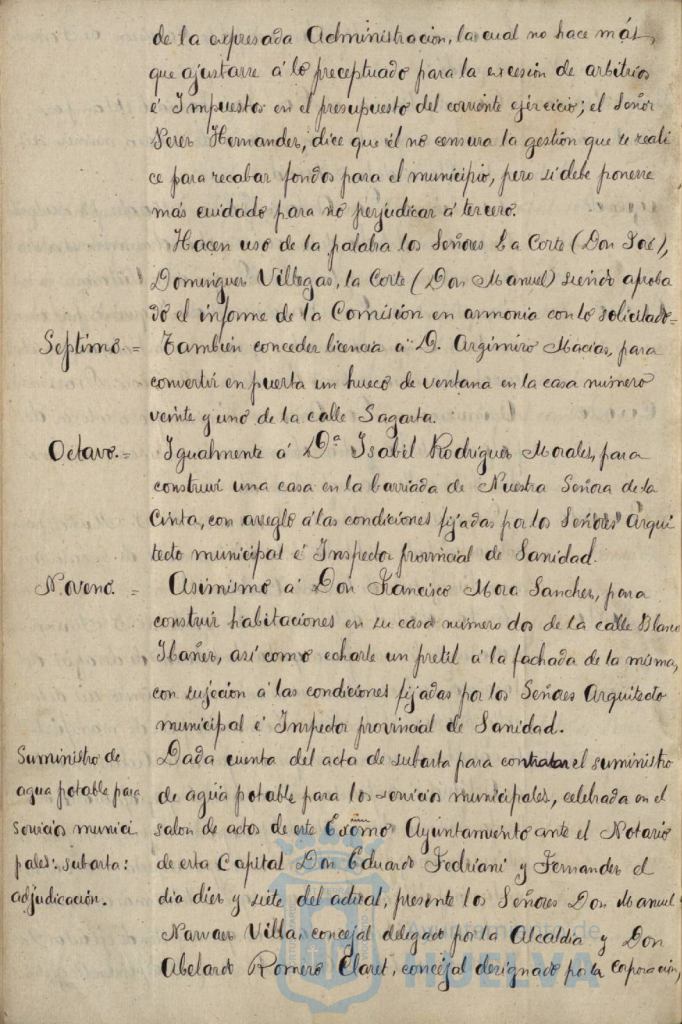 de la expresada Administración, la cual no hace más,
que ajustarse á lo preceptuado para la excesión de arbitrios
é Impuestos en el presupuesto del corriente ejercicio; el Señor
Perez Hernandez, dice que él no censura la gestión que se reali
ce para recabar fondos para el municipio, pero si debe ponerse
más cuidado para no perjudicar á tercero.
Hacen uso de la palabra los Señores La Corte (Don José),
Dominguez Villegas, la Corte (Don Manuel) siendo aproba
do el informe de la Comisión en armonia con lo solicitado=
Septimo.=
También conceder licencia á D. Argimiro Macias, para
convertir en puerta un hueco de ventana en la casa número
veinte y uno de la calle Sagasta.
Octavo.=
Igualmente á Dª Isabel Rodriguez Morales, para
construir una casa en la barriada de Nuestra Señora de la
Cinta, con arreglo á las condiciones fijadas por los Señores Arqui
tecto municipal é Inspector provincial de Sanidad.
Noveno. =
Asimismo á Don Francisco Mora Sanchez, para
construir habitaciones en su casa número dos de la calle Blasco
Ibañez, así como echarle un pretil á la fachada de la misma,
con sujeción á las condiciones fijadas por los Señores Arquitecto
municipal é Inspector provincial de Sanidad.
Suministro de
agua potable para
servicios munici
pales: subasta:
adjudicación.
Dada cuenta del acta de subasta para contratar el suministro
de agua potable para los servicios municipales, celebrada en el
salon de actos de este Excmo Ayuntamiento ante el Notario
de esta Capital Don Eduardo Fedriani y Fernandez el
dia diez y siete del actual, presente los Señores Don Manuel
Narvaez Villa, concejal delegado por la Alcaldía y Don
Abelardo Romero Claret, concejal designado por la Corporación,
Ayuntamiento de
HUELVA